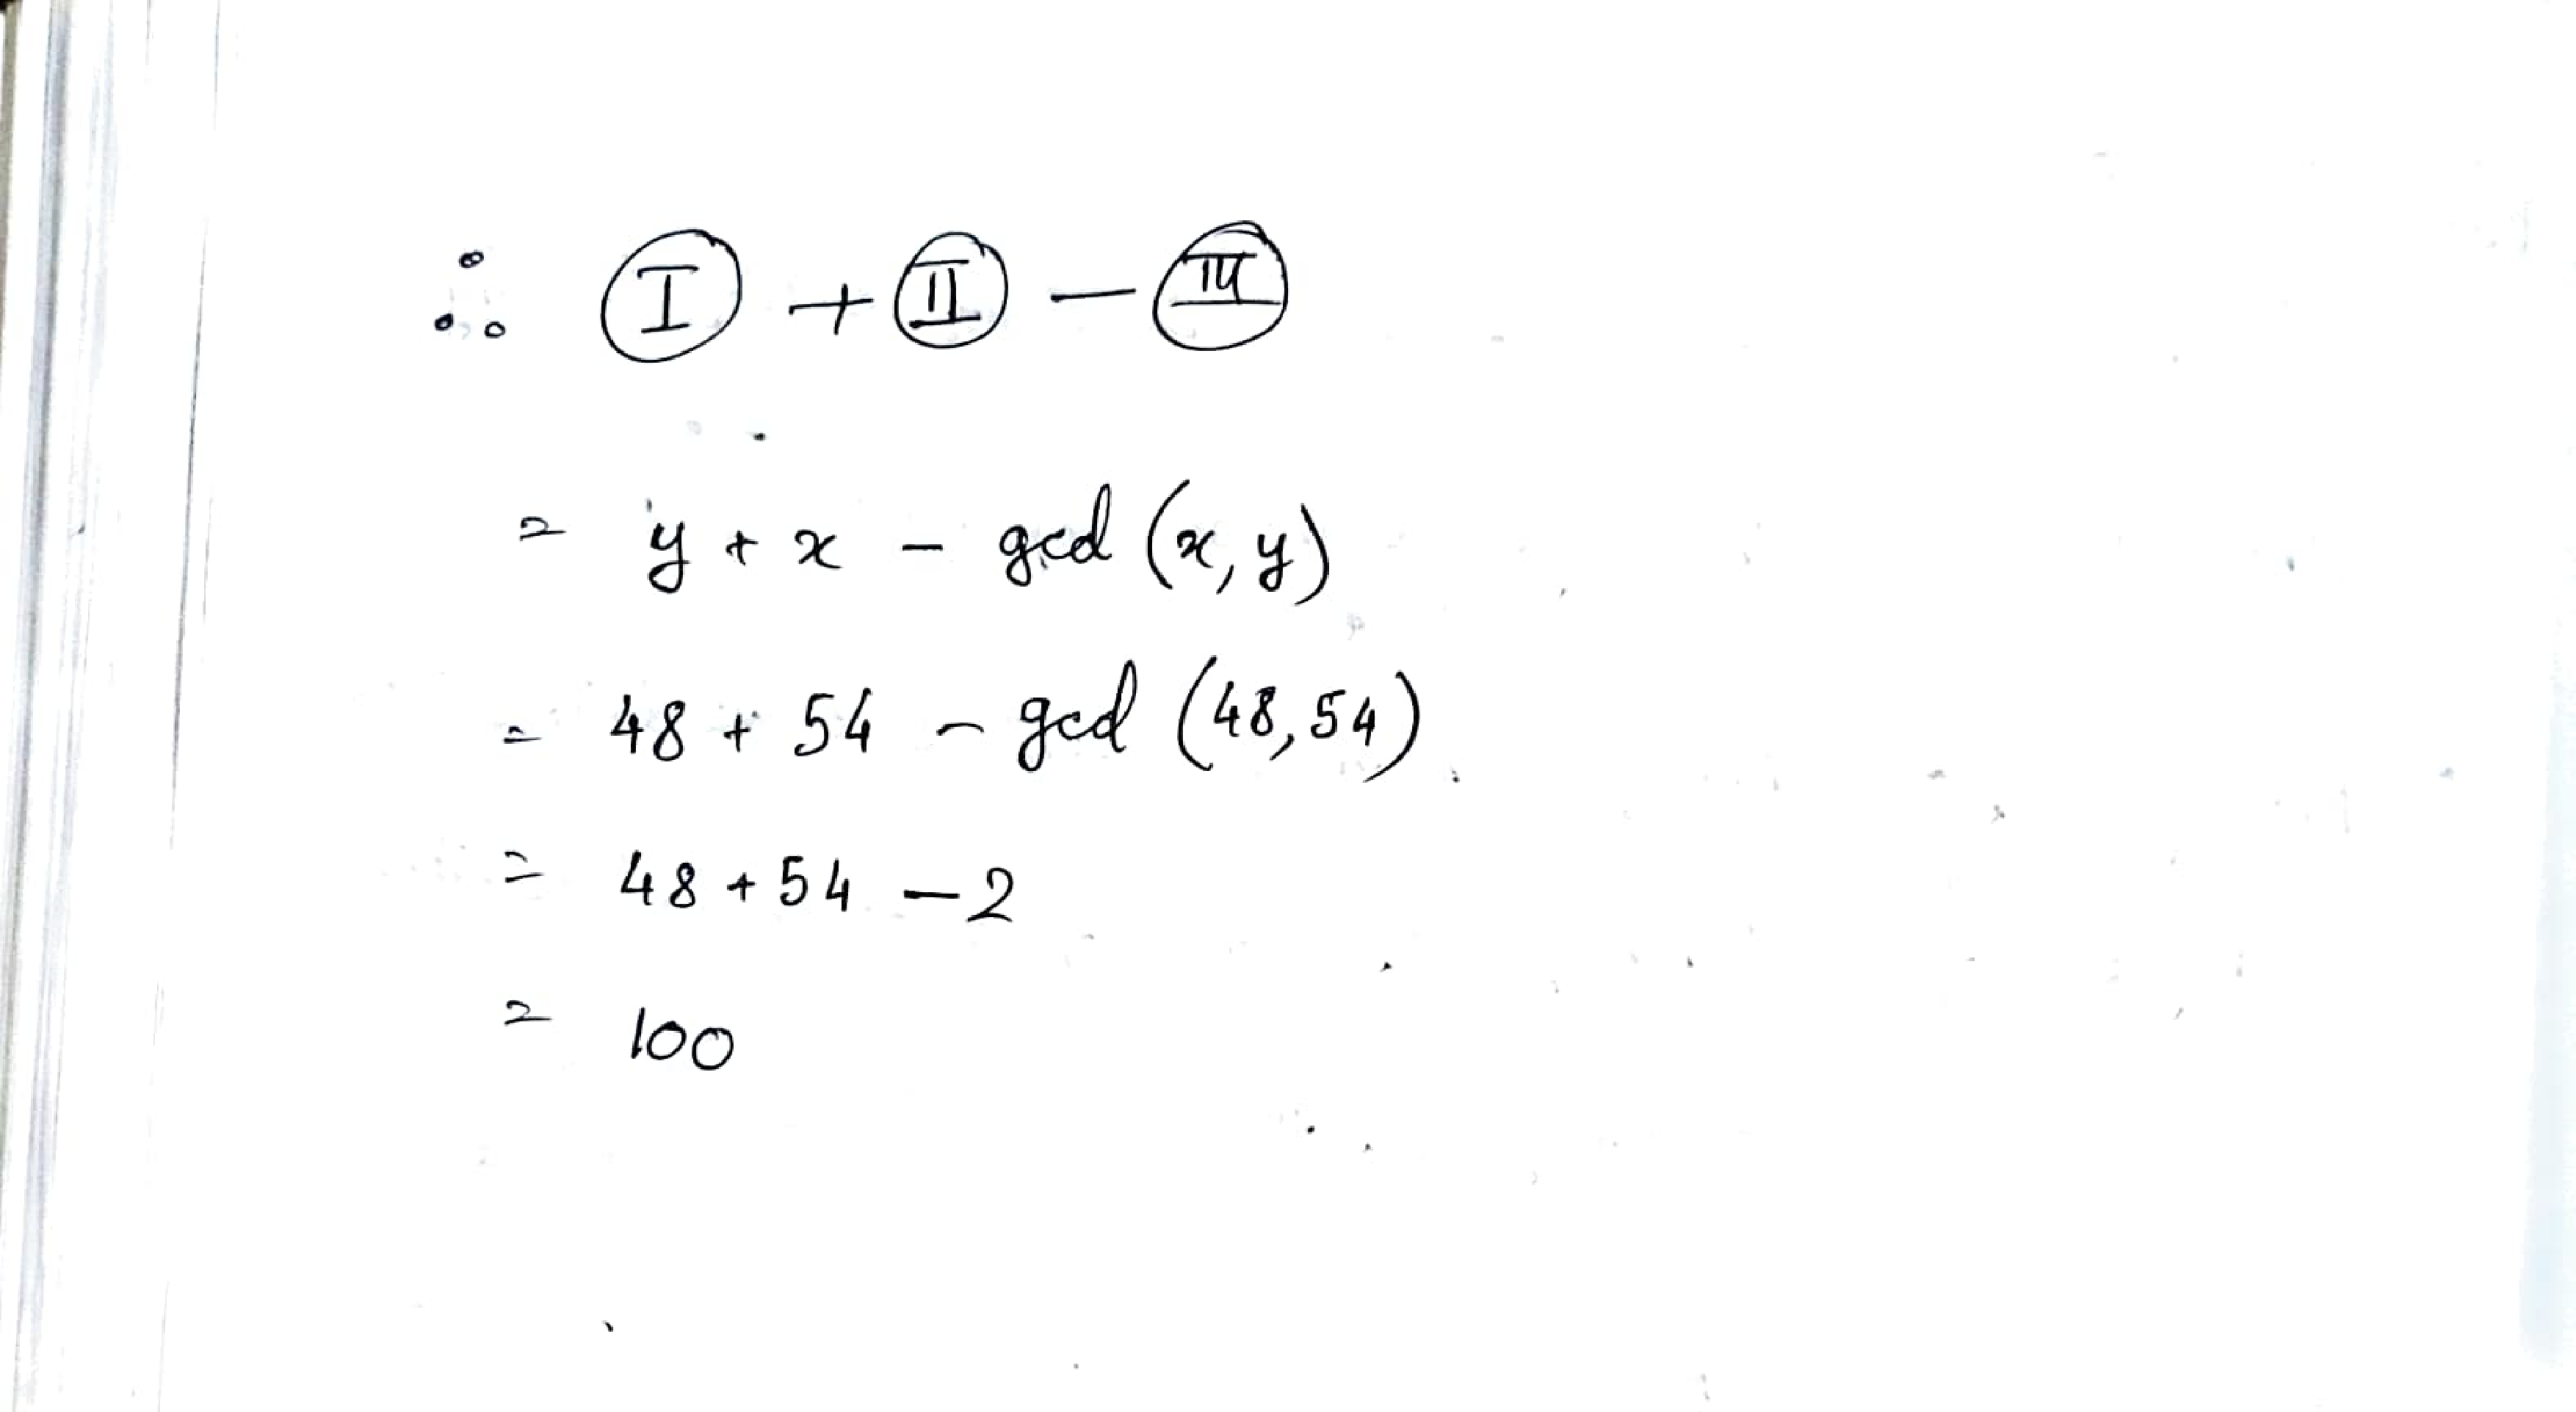 ∴ Ⓘ + (II) - (III)
= y + x - gcd (x, y)
= 48 + 54 - gcd (48, 54)
= 48 + 54 - 2
= 100